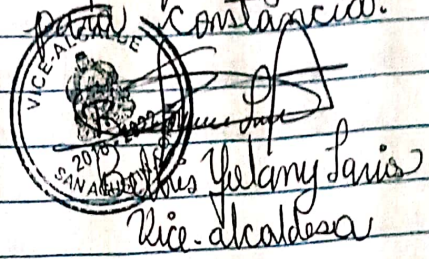 para constancia.
VICE-ALCALDE
2018-2022
Belkis Yelany Saris
Vice-alcaldesa